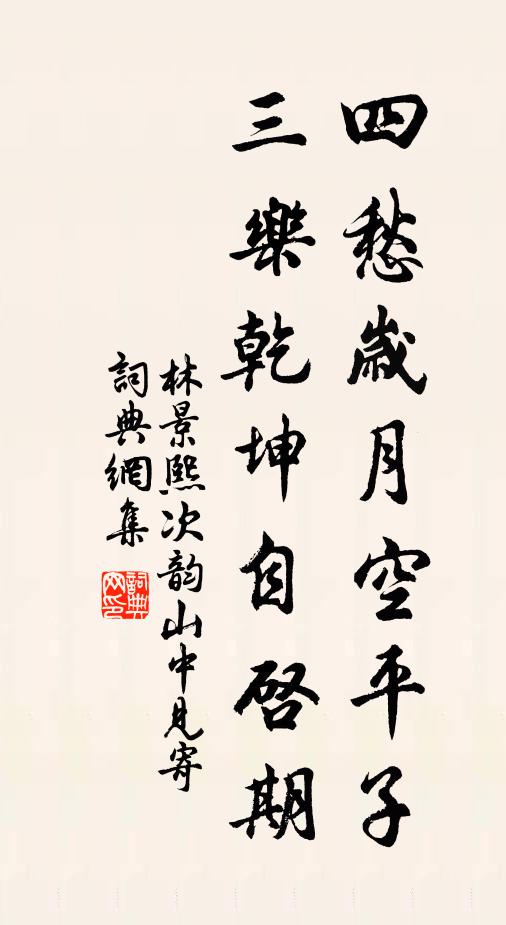 四愁歲月空平子
三樂乾坤自啓期
林景熙次韵山中見寄
詞典網集
詞典
网印